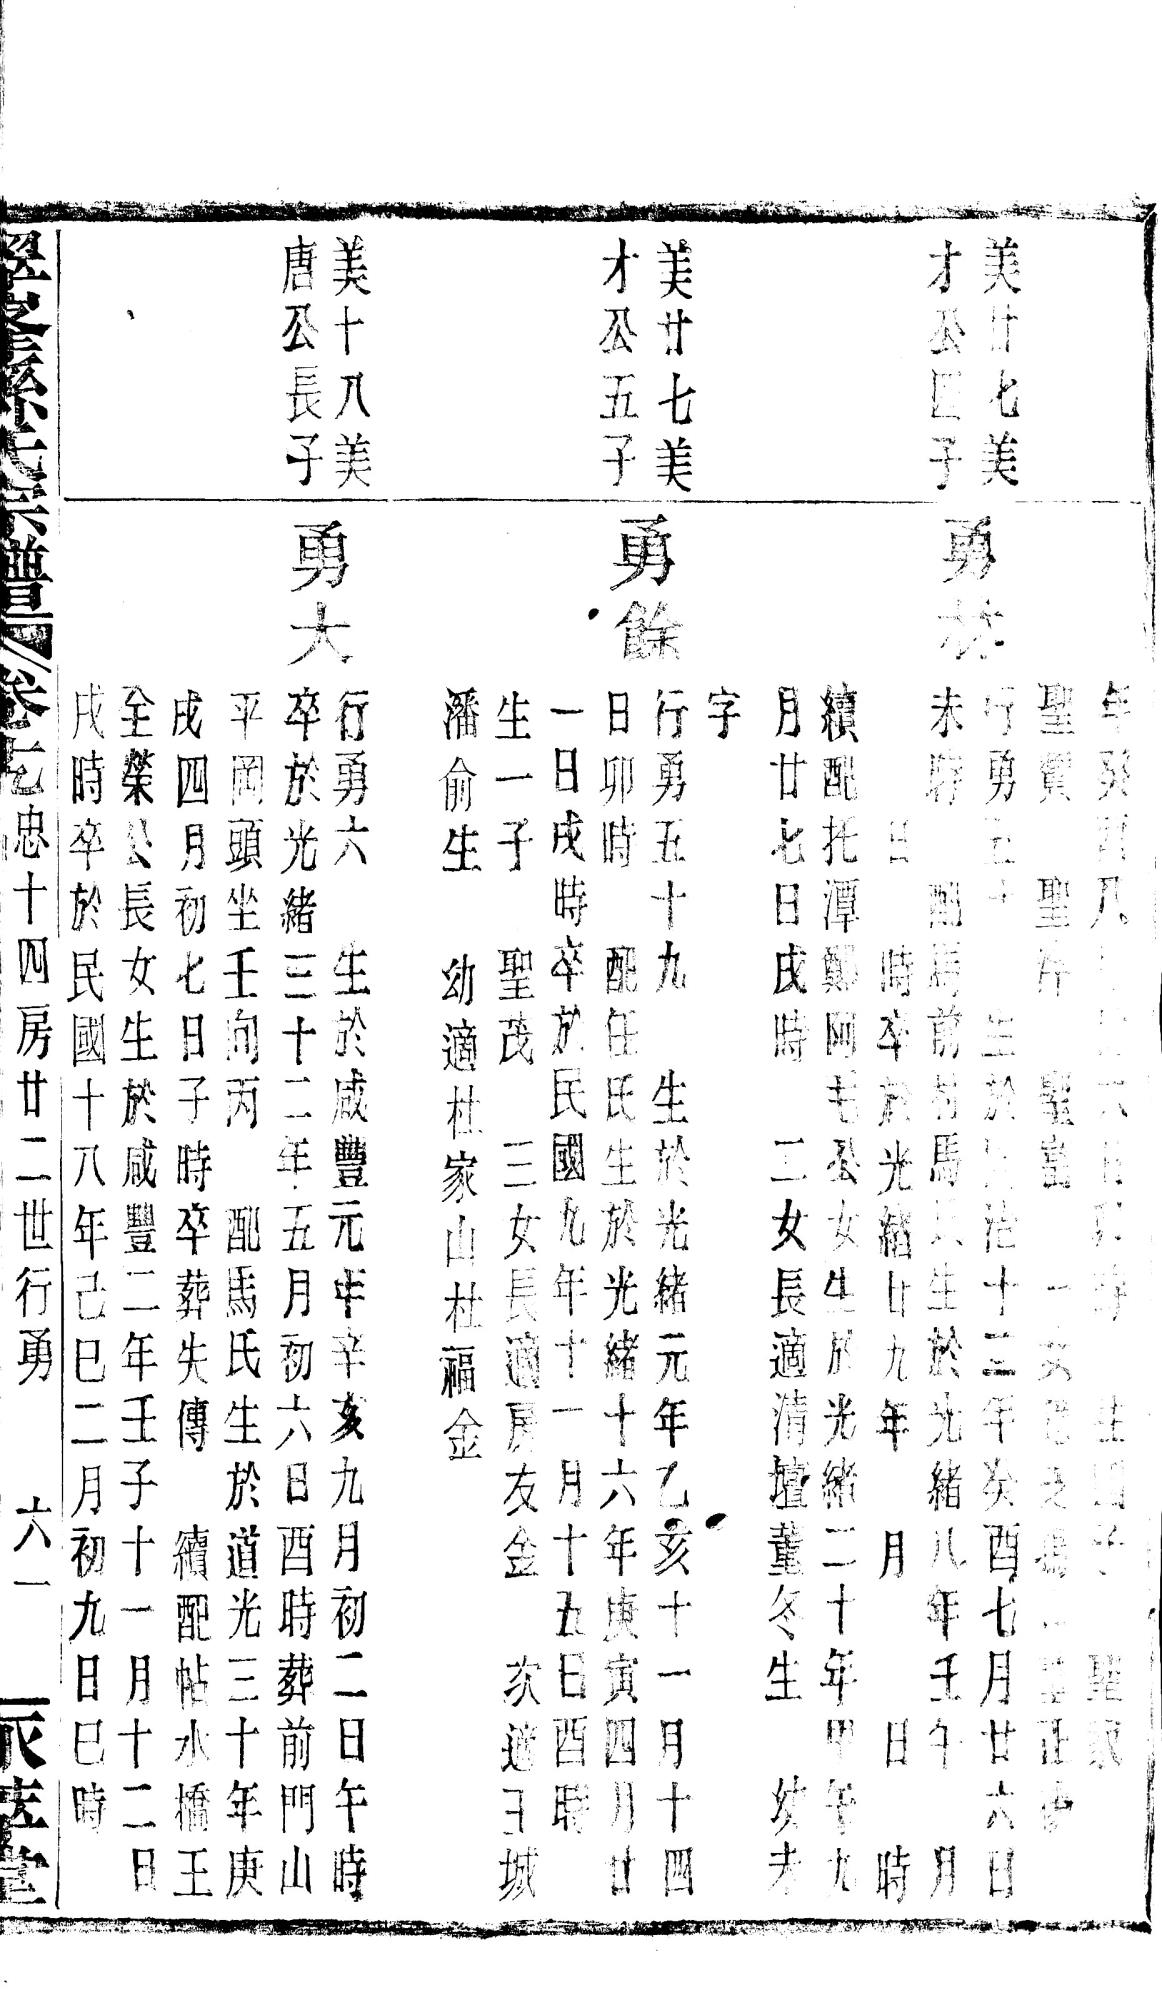 美廿七美
才公四子
勇林
年癸酉八
聖賢 聖 聖 一女
行勇五十 生於同治十二年癸酉七月廿六日
未時 配馬前村馬氏生於光緒八年壬午 月
日 時卒於光緒廿九年 月 日 時
續配托潭鄭阿毛公女生於光緒二十年甲午九
月廿七日戌時 二女長適清壇董冬生 幼未
字
美廿七美
才公五子
勇餘
行勇五十九 生於光緒元年乙亥十一月十四
日卯時 配任氏生於光緒十六年庚寅四月廿
一日戌時卒於民國九年十一月十五日酉時
生一子 聖茂 三女長適房友金 次適王城
潘俞生 幼適杜家山杜福金
美十八美
唐公長子
勇大
行勇六 生於咸豐元年辛亥九月初二日午時
卒於光緒三十二年五月初六日酉時葬前門山
平岡頭坐壬向丙 配馬氏生於道光三十年庚
戌四月初七日子時卒葬失傳 續配帖水橋王
全榮公長女生於咸豐二年壬子十一月十二日
戌時卒於民國十八年己巳二月初九日巳時
孫氏宗譜 卷七 忠十四房廿二世行勇 六一 堂